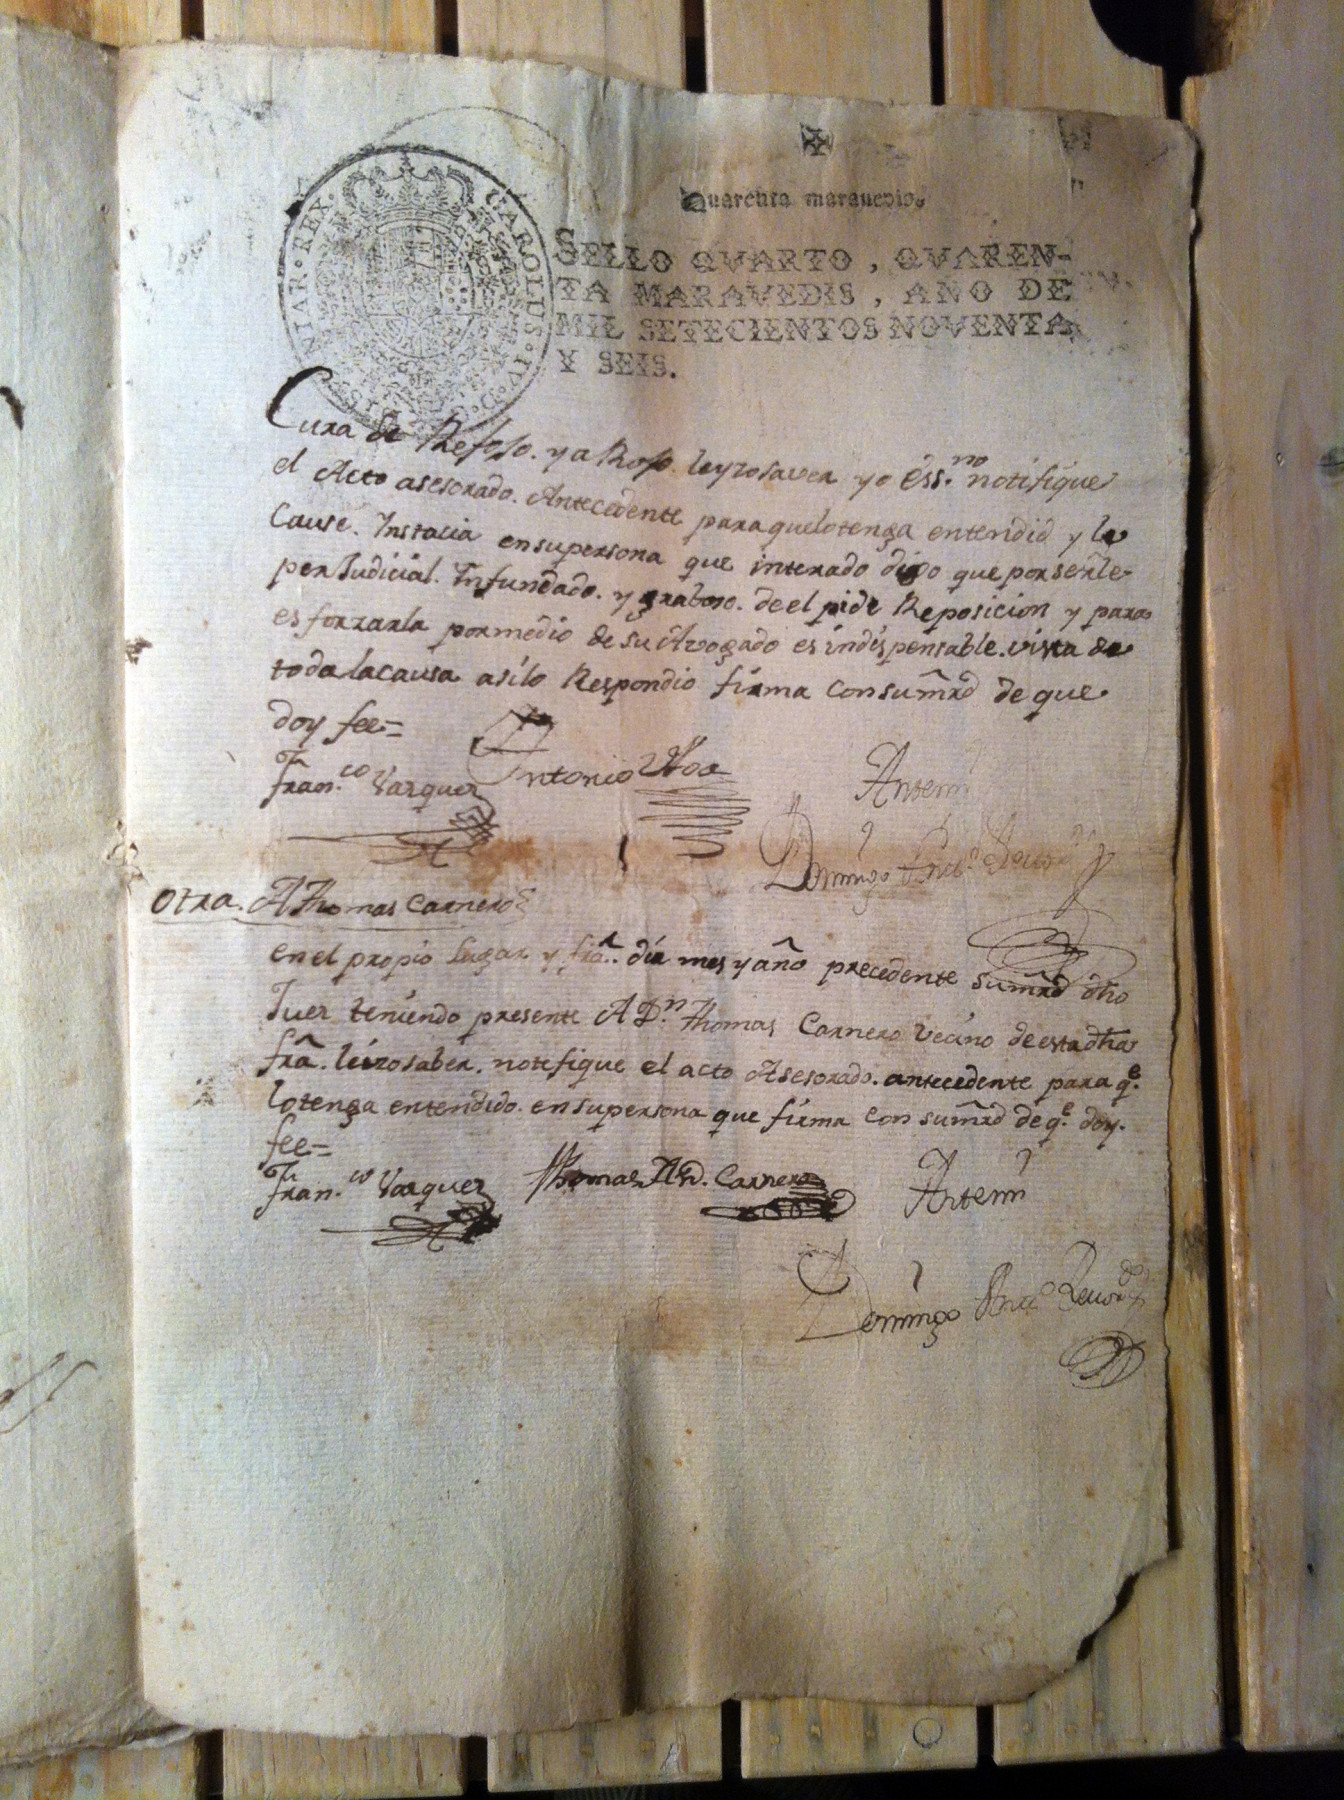 Quarenta maravedis.
SELLO QVARTO, QVAREN-
TA MARAVEDIS, AÑO DE
MIL SETECIENTOS NOVENTA
Y SEIS.
CAROLUS · IV · D · G · HISPANIAR · REX ·
Cura de Refojo. y a Rojo leyzo saver yo éss.no notifique
el Acto asesorado. Antecedente para quelotenga entendid y le
Cause. Instacia ensupersona que interado dijo que porserle
perJudicial. Infundado. y graboso. de el pide Reposicion y para
esforrarla pormedio de su Avogado es indispensable. vista de
toda lacausa asilo Respondio firma consumrd de que
doy fee=
Fran.co Varquez Antonio Antemi
Domingo
Otra. A Thomas Carnero
en el propio Lugar y fra. día mes y año precedente sumrd dho
Juez teniendo presente A D.n Thomas Carnero Vecino de esta dha
fra. leizo saber. notefique el acto Asesorado. antecedente para q.e
lotenga entendido. ensupersona que firma con sumrd de q.e doy.
fee=
Fran.co Varquez Thomas An. Carnero Antemi
Domingo